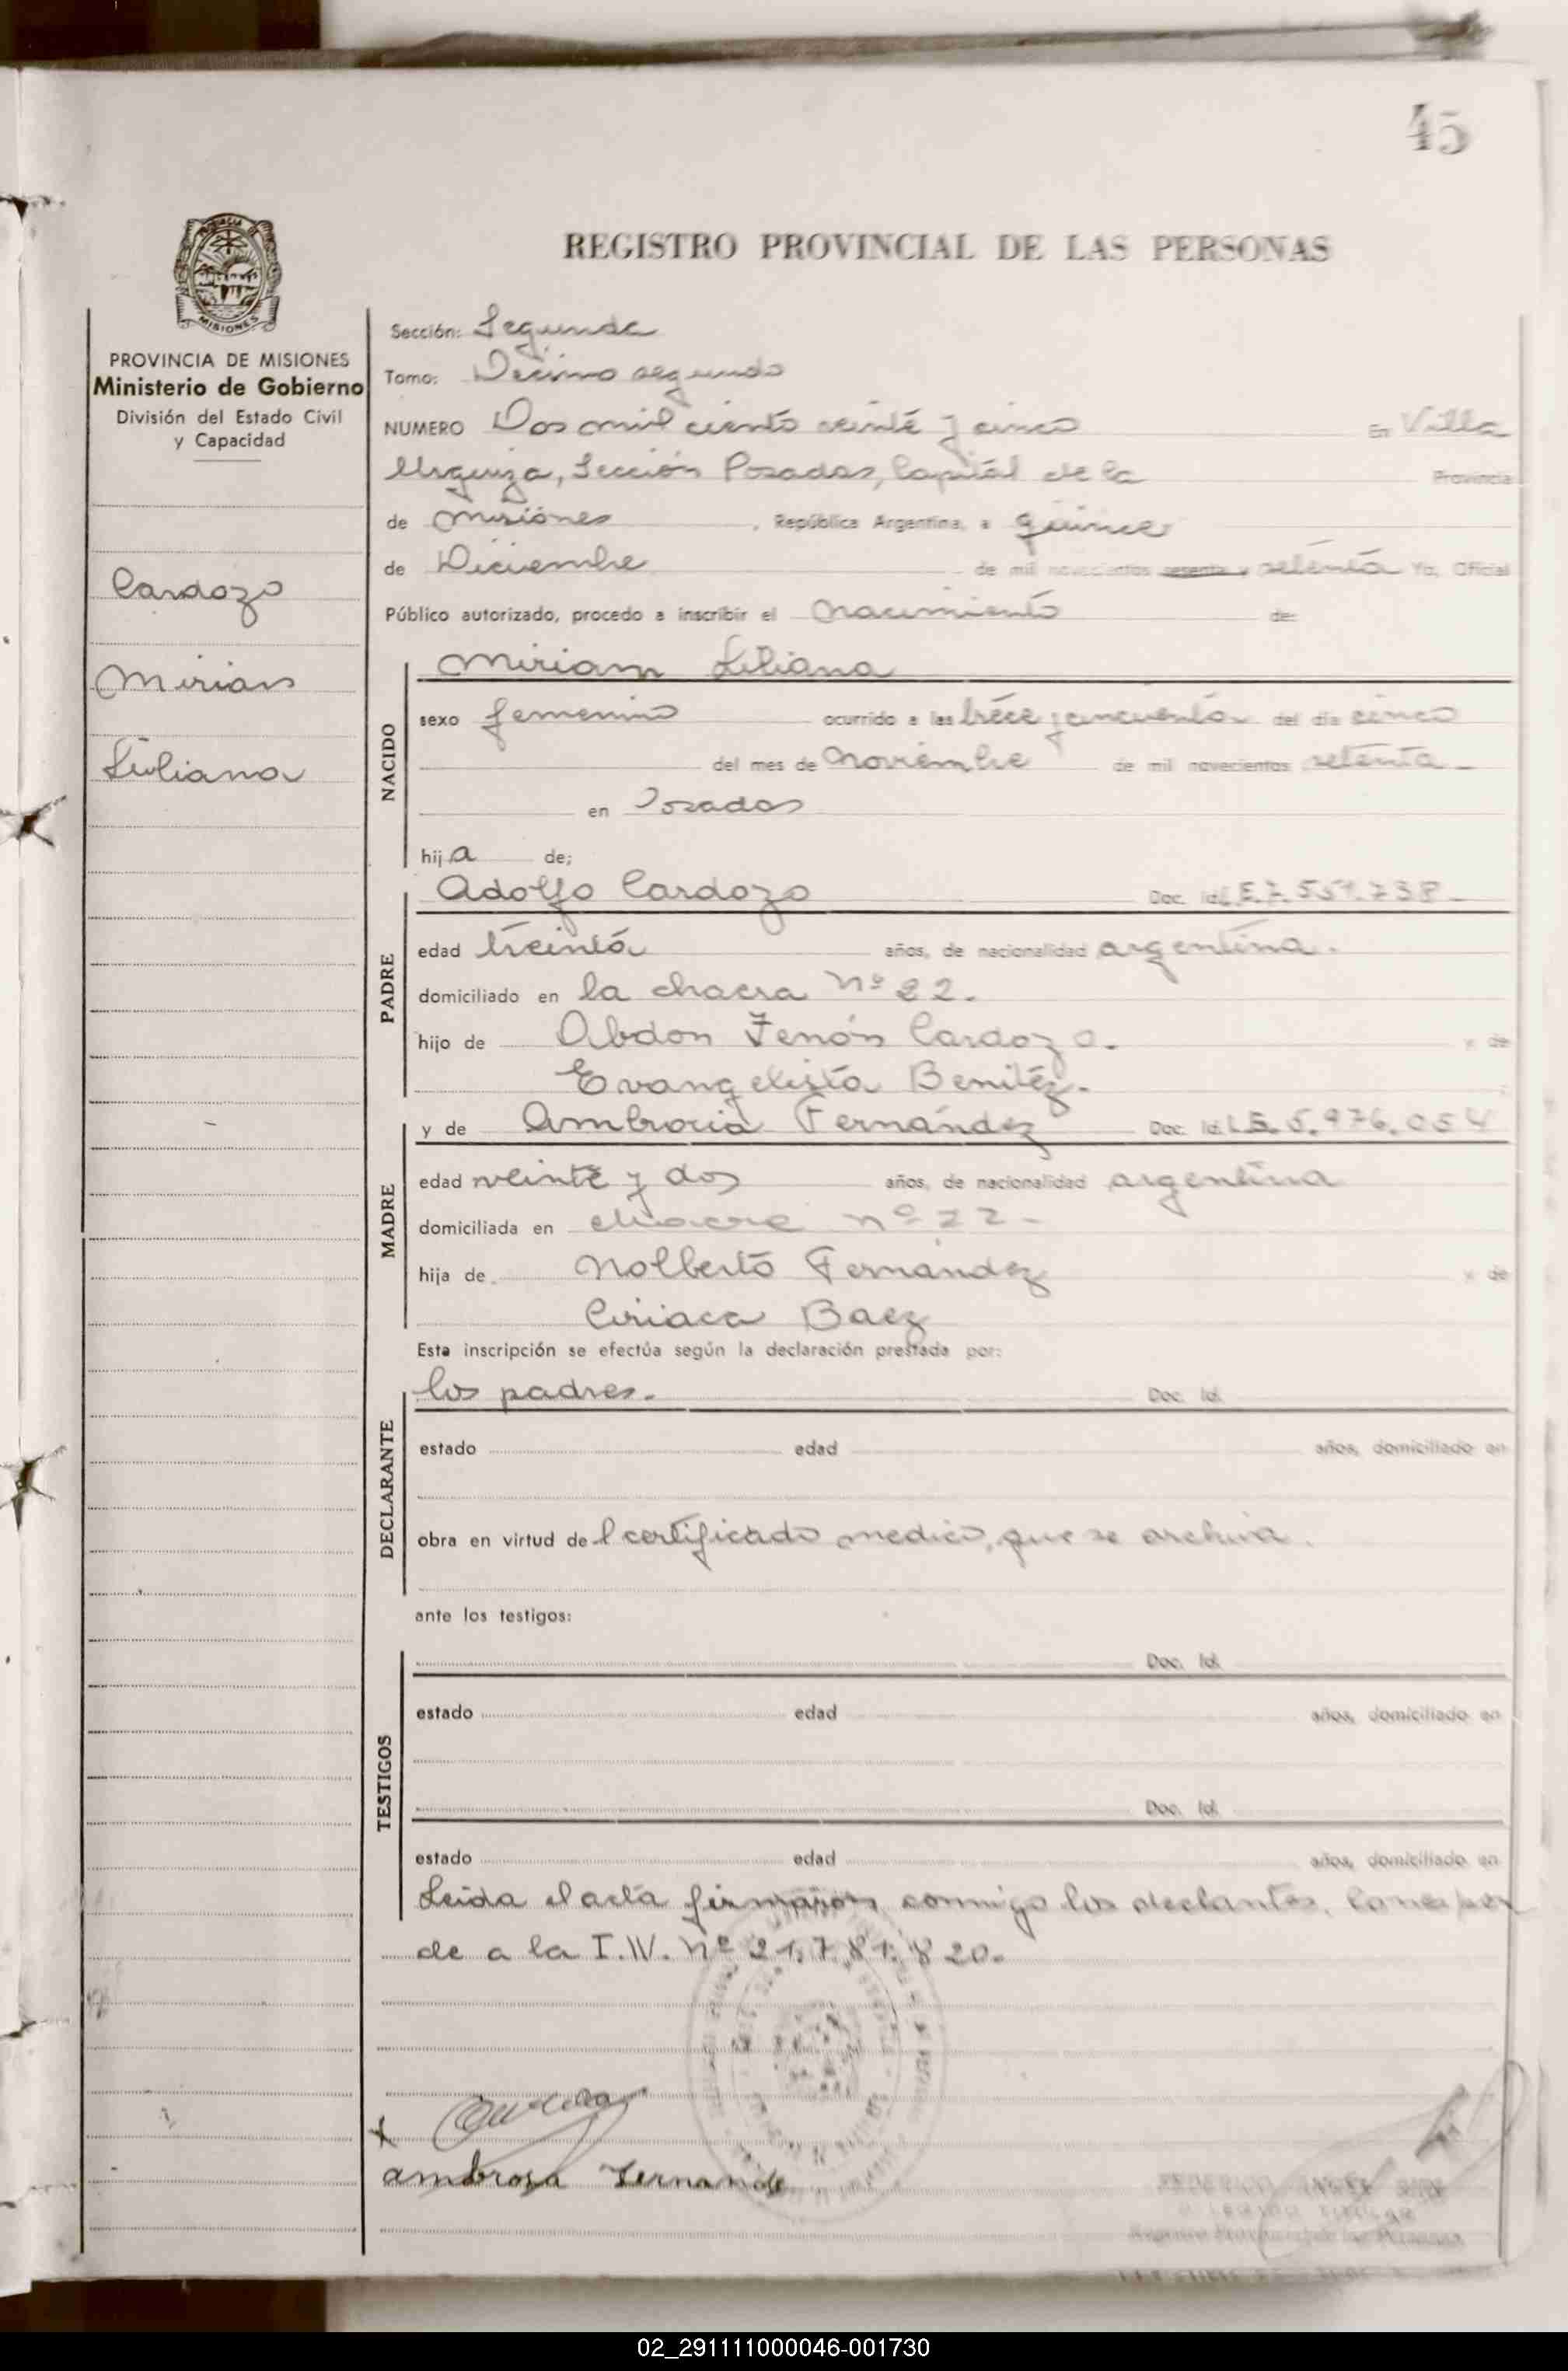 45
PROVINCIA DE
MISIONES
PROVINCIA DE MISIONES
Ministerio de Gobierno
División del Estado Civil
y Capacidad
Cardozo
Mirian
Liliana
REGISTRO PROVINCIAL DE LAS PERSONAS
Sección: Segunda
Tomo: Décimo segundo
NUMERO Dos mil ciento veinte y cinco En Villa
Urquiza, Sección Posadas, Capital de la Provincia
de Misiones, República Argentina, a quince
de Diciembre de mil novecientos sesenta y setenta Yo, Oficial
Público autorizado, procedo a inscribir el nacimiento de:
NACIDO
Miriam Liliana
sexo femenino ocurrido a las trece y cincuenta del día cinco
del mes de Noviembre de mil novecientos setenta
en Posadas
hija de;
PADRE
Adolfo Cardozo Doc. Id. L.E. 7.551.738
edad treinta años, de nacionalidad argentina.
domiciliado en la chacra nº 22.
hijo de Abdon Zenón Cardozo. y de
Evangelista Benitéz.
MADRE
y de Ambrocia Fernández Doc. Id. L.E. 5.976.054
edad veinte y dos años, de nacionalidad argentina
domiciliada en chacra nº 22-
hija de Nolberto Fernández y de
Ciriaca Baez
Esta inscripción se efectúa según la declaración prestada por:
DECLARANTE
los padres. Doc. Id.
estado edad años, domiciliado en
obra en virtud del certificado medico, que se archiva.
ante los testigos:
TESTIGOS
Doc. Id.
estado edad años, domiciliado en
Doc. Id.
estado edad años, domiciliado en
Leida el acta firmaron conmigo los declantes. Correspon
de a la I.N. nº 21.781.820.
ambrosa Fernande
FEDERICO ANGEL
Registro Provincial de las Personas
02_291111000046-001730